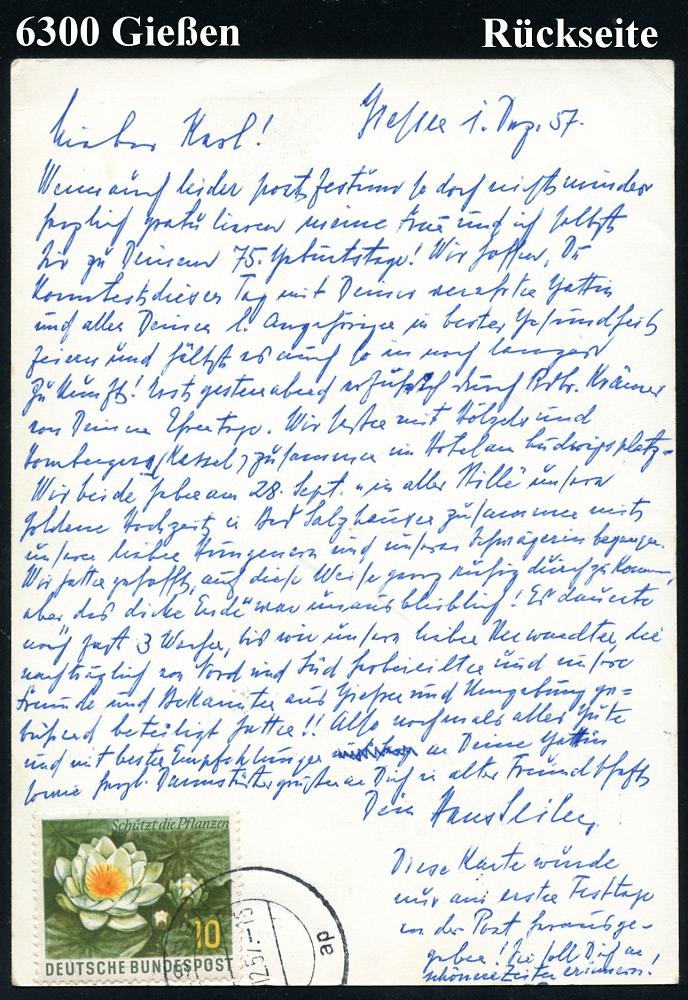 6300 Gießen
Rückseite
Gießen 1. Dez. 57.
Lieber Karl!
Wenn auch leider post festum so doch nicht minder
herzlich gratulieren meine Frau und ich selbst
Dir zu Deinem 75. Geburtstage! Wir hoffen, Du
konntest diesen Tag mit Deiner verehrten Gattin
und allen Deinen l. Angehörigen in bester Gesundheit
feiern und hältst es auch so in noch langer
Zukunft! Erst gestern abend erfuhr ich durch Krämer
von Deinem Ehrentage. Wir mit Hölzels und
Hombergers (Kassel) zusammen im Hotel am Ludwigsplatz.
Wir beide haben am 28. Sept. "in aller Stille" unsere
goldene Hochzeit in Bad Salzhausen zusammen mit
unseren lieben und unserer Schwägerin begangen.
Wir hatten gehofft, auf diese Weise ganz ruhig durchzukommen,
aber das dicke Ende war unausbleiblich! Es dauerte
noch fast 3 Wochen, bis wir unsere lieben Verwandten, die
nachträglich von Nord und Süd herbeieilten und unsere
Freunde und Bekannten aus Gießen und Umgebung ge=
bührend beteiligt hatten!! Also nochmals alles Gute
und mit besten Empfehlungen an Deine Gattin
sowie herzl. Darmstädtergrüßen an Dich in alter Freundschaft
Dein Hans
Diese Karte wurde
nur am ersten Festtage
von der Post herausge-
geben! Sie soll Dich an
schönere Zeiten erinnern!
Schützt die Pflanzen
10
DEUTSCHE BUNDESPOST